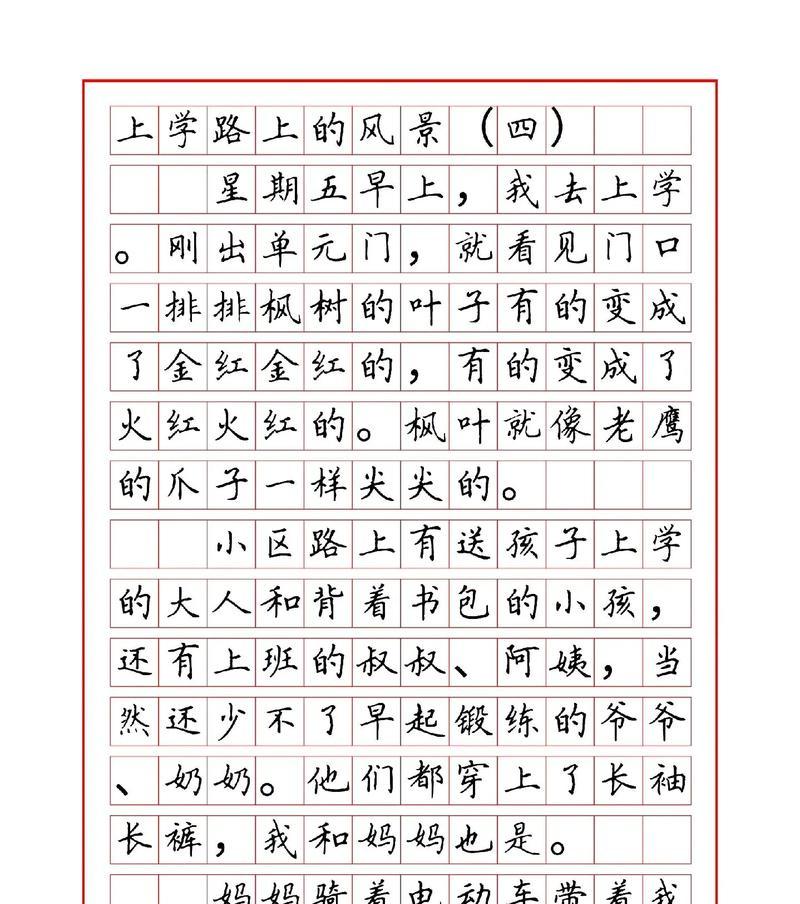 上学路上的风景（四）
星期五早上，我去上学
。刚出单元门，就看见门口
一排排枫树的叶子有的变成
了金红金红的，有的变成了
火红火红的。枫叶就像老鹰
的爪子一样尖尖的。
小区路上有送孩子上学
的大人和背着书包的小孩，
还有上班的叔叔、阿姨，当
然还少不了早起锻练的爷爷
、奶奶。他们都穿上了长袖
长裤，我和妈妈也是。
妈妈骑着电动车带着我